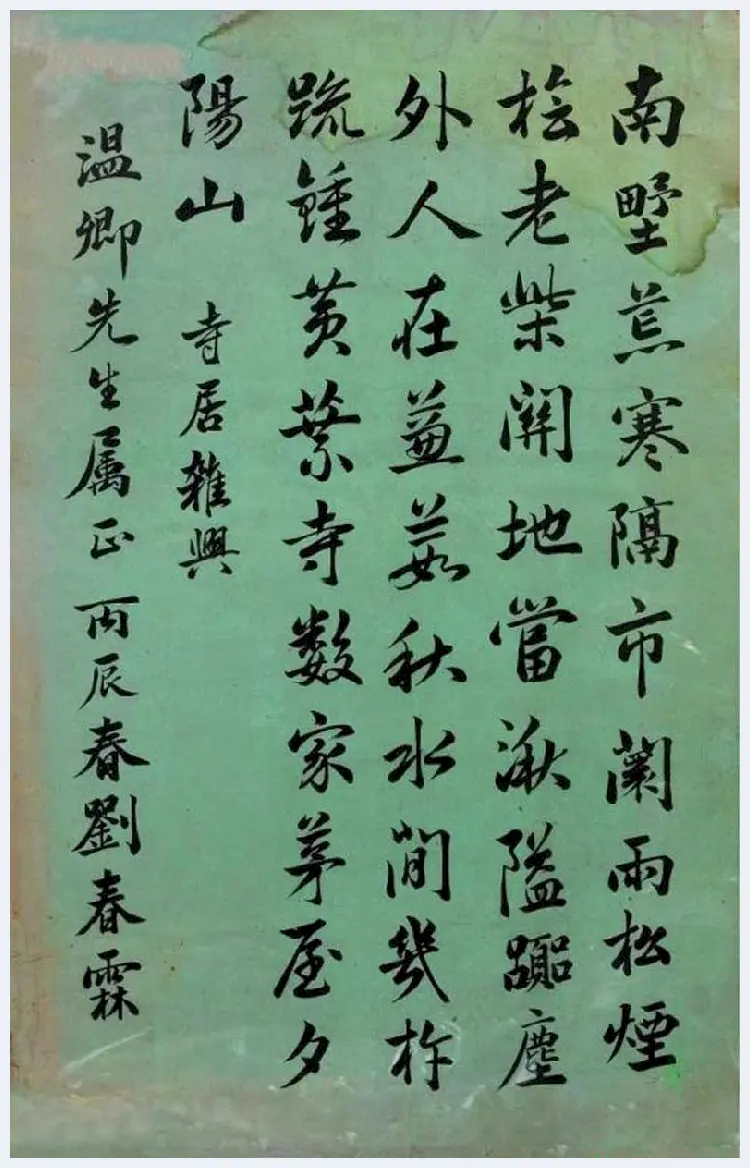 南墅荒寒隔市闤雨松煙
桧老柴關地當湫隘嚻塵
外人在蒹葭秋水間幾杵
疏鍾黄葉寺数家茅屋夕
陽山 寺居雜興
温卿先生属正丙辰春劉春霖